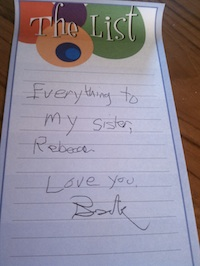 The List
Everything to
my sister,
Rebecca
Love you,